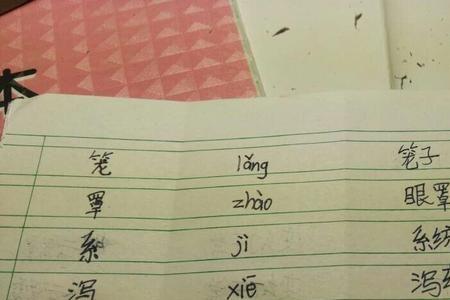 本
笼 lǎng 笼子
罩 zhào 眼罩
系 jì 系统
泻 xiē 泻